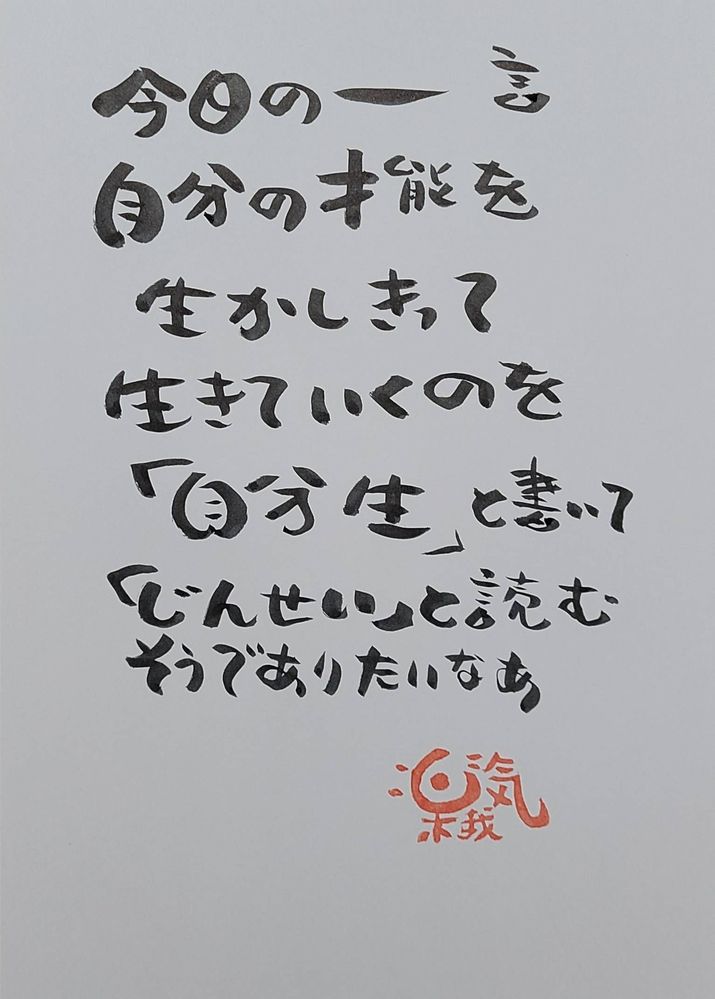 今日の一言
自分の才能を
生かしきって
生きていくのを
「自分生」と書いて
「じんせい」と読む
そうでありたいなあ
楽気